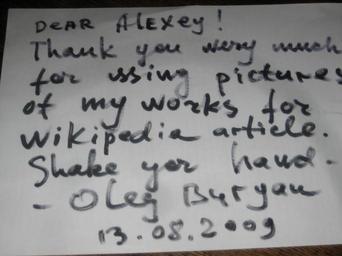 DEAR ALEXEY!
Thank you wery much
for using pictures
of my works for
wikipedia article.
Shake yor hand.
- Oleg Buryan
13.08.2009